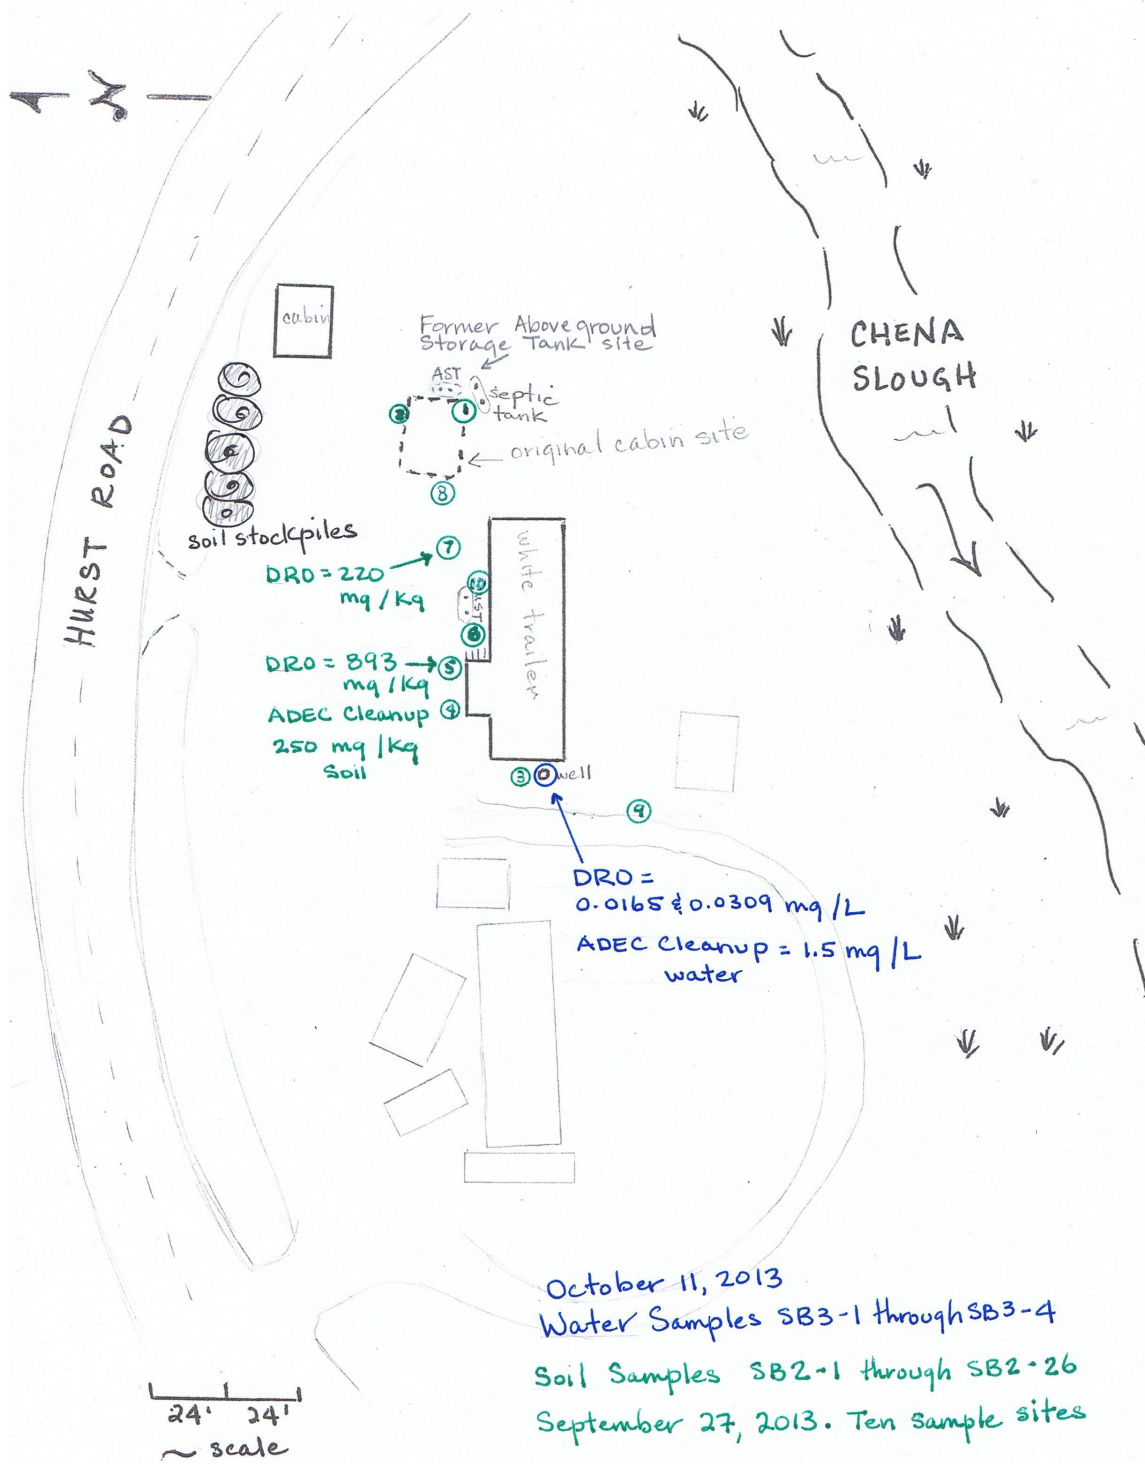 N
cabin
Former Aboveground
Storage Tank site
AST
septic
tank
2
1
original cabin site
8
HURST ROAD
soil stockpiles
CHENA
SLOUGH
7
DRO = 220
mg/Kg
10
UST
6
white trailer
DRO = 893
5
mg/Kg
ADEC Cleanup
4
250 mg/Kg
Soil
3
well
9
DRO =
0.0165 & 0.0309 mg/L
ADEC Cleanup = 1.5 mg/L
water
October 11, 2013
Water Samples SB3-1 through SB3-4
Soil Samples SB2-1 through SB2-26
September 27, 2013. Ten sample sites
24' 24'
~ scale